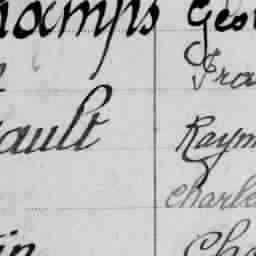 hamps Geo
Fra
ault Raym
Charle
in Cha